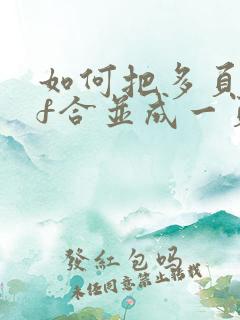 如何把多頁
f合並成一頁
發紅包吗
未经同意禁止转载